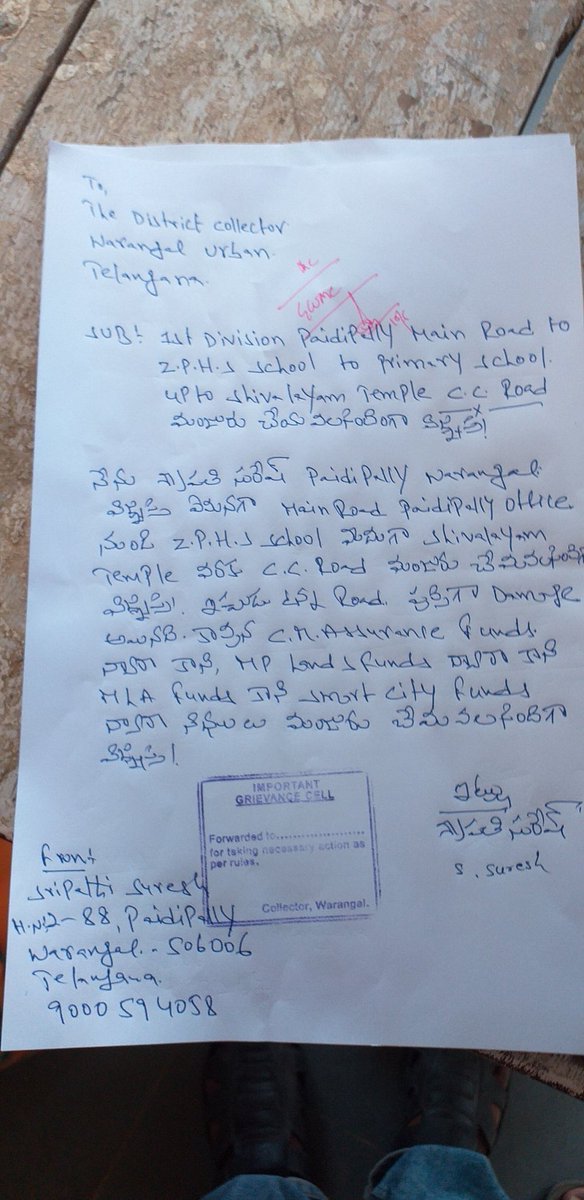 To,
The District collector
Warangal urban.
Telangana.
GWMC
SUB: 1st Division Paidipally Main Road to
Z.P.H.S school to primary school.
upto Shivalayam Temple C.C. Road
మంజూరు చేయవలసిందిగా విజ్ఞప్తి!
నేను శ్రీపతి సురేష్ Paidipally Warangal.
విజ్ఞప్తి Main Road Paidipally office
నుండి Z.P.H.S school మీదుగా Shivalayam
Temple వరకు C.C. Road మంజూరు చేయవలసిందిగా
విజ్ఞప్తి. ఇప్పుడు ఉన్న Road. పూర్తిగా Damage
అయినది. C.M. Assurance funds.
ద్వారా కానీ, MP Lands funds ద్వారా కానీ
MLA funds కానీ smart city funds
ద్వారా నిధులు మంజూరు చేయవలసిందిగా
విజ్ఞప్తి!
IMPORTANT
GRIEVANCE CELL
Forwarded to......................
for taking necessary action as
per rules.
Collector, Warangal.
ఇట్లు
శ్రీపతి సురేష్
S. Suresh
From:
Sripathi Suresh
H.No 2-88, Paidipally
Warangal. - 506006
Telangana.
9000594058